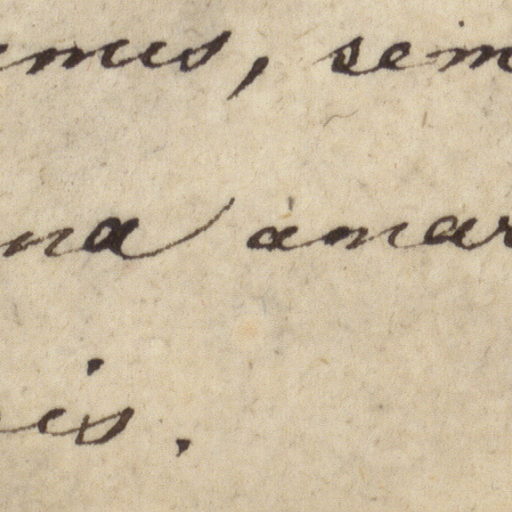 emus, sem
na amar
is.